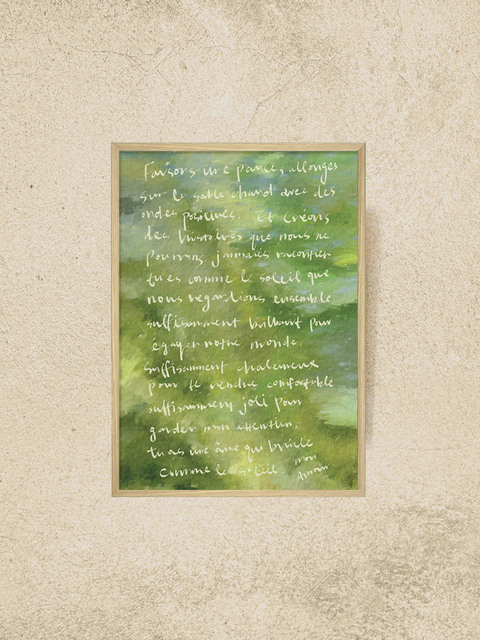 Faisons une pause, allongés
sur le sable chaud avec des
ondes positives. Et créons
les histoires que nous ne
pourrons jamais raconter
tu es comme le soleil que
nous regardions ensemble
suffisamment brillant pour
égayer notre monde.
suffisamment chaleureux
pour te rendre comfortable
suffisamment joli pour
garder mon attention.
tu as une âme qui brille
comme le soleil mon
Amour